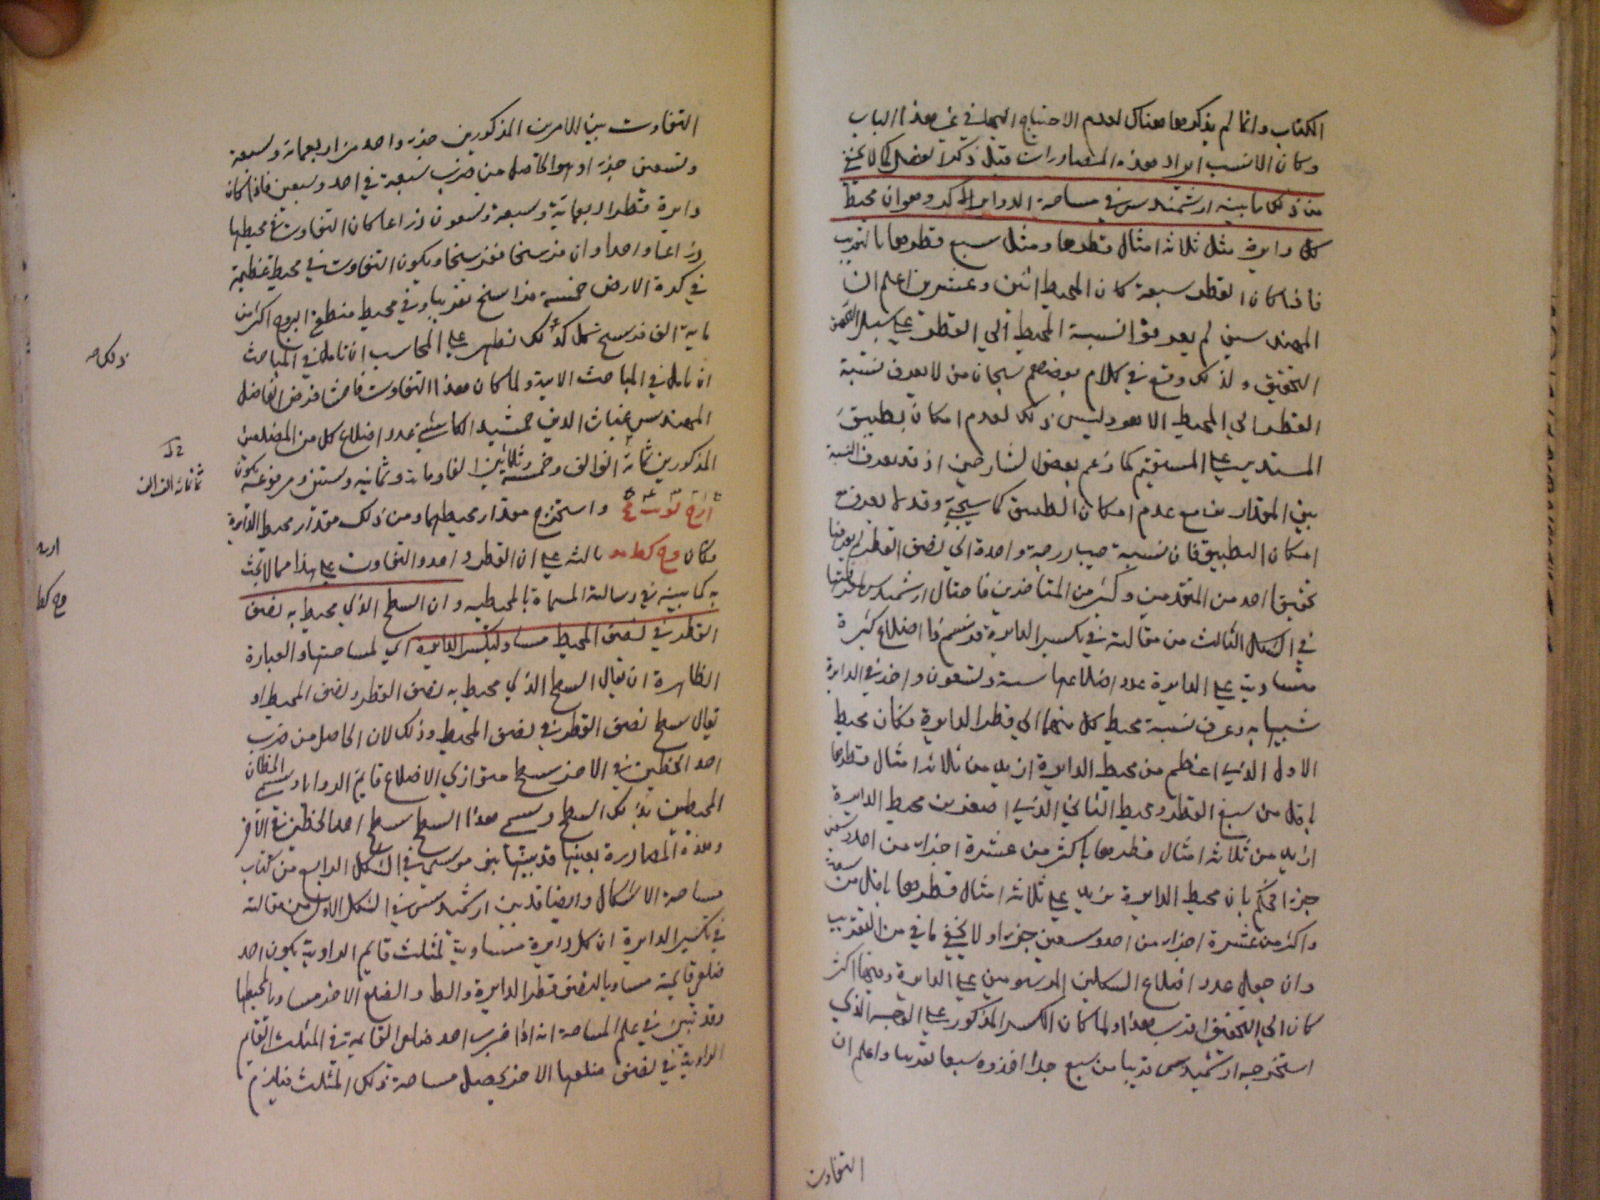 الكتاب وانما لم يذكرها هناك لعدم الاحتياج اليها في غير هذا الباب
وكان الانسب ايراد هذه المصادرات قبل ذكر الفصل كما لا يخفى
من ذلك ما بينه ارشميدس في مساحة الدواير والكرة وهو ان محيط
كل دايرة مثل ثلاثة امثال قطرها ومثل سبع قطرها بالتقريب
فاذا كان القطر سبعة كان المحيط اثنين وعشرين اعلم ان
المهندسين لم يعرفوا نسبة المحيط الي القطر علي سبيل
التحقيق ولذلك وقع في كلام بعضهم سبحان من لا يعرف نسبة
القطر الي المحيط الا هو وليس ذلك لعدم امكان تطبيق
المستدير علي المستقيم كما زعم بعض الشارحين اذ قد يعرف النسبة
بين المقدارين مع عدم امكان التطبيق كما سيجئ وقد لا يعرف مع
امكان التطبيق فان نسبة جيب درجة واحدة الي نصف القطر لم يعرفها
تحقيقا احد من المتقدمين وكثير من المتاخرين فاحتال ارشميدس
في الشكل الثالث من مقالته في تكسير الدايرة فرسم ذا اضلاع كثيرة
متساوية علي الدايرة عدد اضلاعها ستة وتسعون واخر في الدايرة
شبيها به وعرف نسبة محيط كل منهما الي قطر الدايرة فكان محيط
الاول الذي اعظم من محيط الدايرة ازيد من ثلاثة امثال قطرها
باقل من سبع القطر ومحيط الثاني الذي اصغر من محيط الدايرة
ازيد من ثلاثة امثال قطرها باكثر من عشرة اجزاء من احد وسبعين
جزءا فحكم بان محيط الدايرة يزيد علي ثلاثة امثال قطرها باقل من سبعه
واكثر من عشرة اجزاء من احد وسبعين جزءا ولا يخفى ما فيه من التقريب
وان جعل عدد اضلاع الشكلين المرسومين علي الدايرة وفيها اكثر
كان الي التحقيق اقرب هذا ولما كان الكسر المذكور علي الوجه الذي
استخرجه ارشميدس قريبا من سبع جدا اخذوه سبعا تقريبا واعلم ان
التفاوت
التفاوت بين الامرين المذكورين جزء واحد من اربعمائة وسبعة
وتسعين جزءا وهو الحاصل من ضرب سبعة في احد وسبعين فاذا كان
دايرة قطرها اربعمائة وسبعة وتسعون ذراعا كان التفاوت في محيطها
ذراعا واحدا وان فرسخا ففرسخا ويكون التفاوت في محيط عظيمة
في كرة الارض خمسة فراسخ تقريبا وفي محيط منطقة البروج اكثر من
ماية الف فرسخ كل ذلك يظهر علي المحاسب ان تامل في المباحث
ان تامل في المباحث الاتية ولما كان هذا التفاوت فاحشا فرض الفاضل
المهندس غياث الدين جمشيد الكاشي عدد اضلاع كل من المضلعين
المذكورين ثمانمائة الف الف وخمسة وثلاثين الفا ومائة وثمانيه وستين ومرفوعه يكون
واستخرج مقدار محيطيهما ومن ذلك مقدار محيط الدايرة
فكان ثالثة علي ان القطر واحد والتفاوت علي هذا مما لا يبحث
به كما بينه في رسالته المسماة بالمحيطيه وان السطح الذي يحيط به نصف
القطر في نصف المحيط مساو لتكسير الدايرة اي لمساحتها والعبارة
الظاهرة ان يقال السطح الذي يحيط به نصف القطر ونصف المحيط او
يقال سطح نصف القطر في نصف المحيط وذلك لان الحاصل من ضرب
احد الخطين في الاخر سطح متوازي الاضلاع قايم الزوايا ويسمي الخطان
المحيطين بذلك السطح ويسمى هذا السطح سطح احد الخطين في الآخر
وهذه المصادرة بعينها قد بينها بنو موسى في الشكل الرابع من كتاب
مساحة الاشكال وايضا قد بين ارشميدس في الشكل الاول من مقالته
في تكسير الدايرة ان كل دايرة مساوية لمثلث قايم الزاوية يكون احد
ضلعي قايمته مساويا لنصف قطر الدايرة والضلع الاخر مساويا لمحيطها
وقد تبين في علم المساحة انه اذا ضرب احد ضلعي القايمة في المثلث القايم
الزاوية في نصف ضلعها الاخر يحصل مساحة ذلك المثلث فيلزم
ذلك
ثمانمائة الف الف